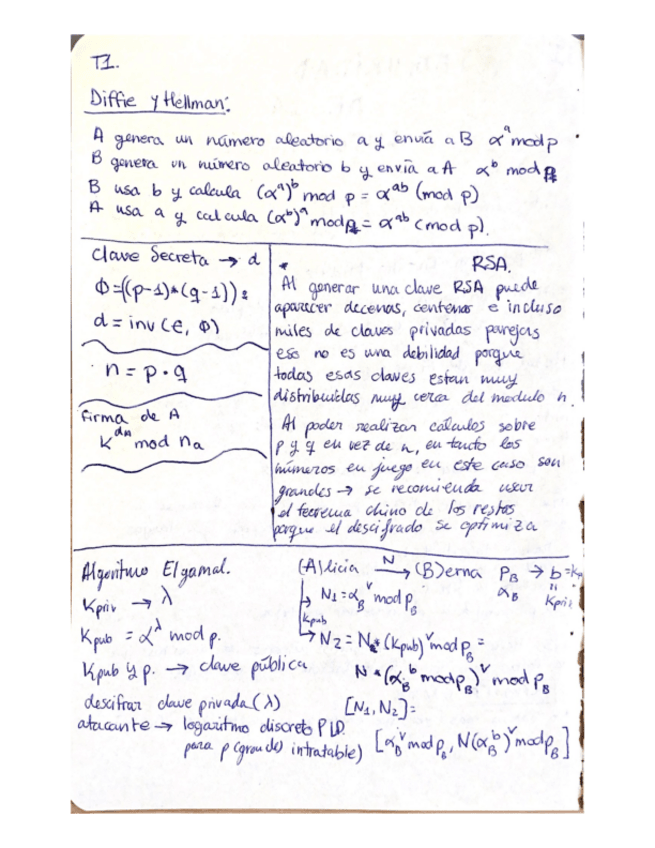 T1.
Diffie y Hellman:
A genera un número aleatorio a y envía a B α^a mod p
B genera un número aleatorio b y envía a A α^b mod p
B usa b y calcula (α^a)^b mod p = α^ab (mod p)
A usa a y calcula (α^b)^a mod p = α^ab (mod p).
Clave Secreta → d
Φ=((p-1)*(q-1));
d = inv(e, Φ)
n = p · q
firma de A
K^dA mod na
* RSA.
Al generar una clave RSA puede
aparecer decenas, centenas e incluso
miles de claves privadas parejas
eso no es una debilidad porque
todas esas claves estan muy
distribuidas muy cerca del modulo n.
Al poder realizar cálculos sobre
p y q en vez de n, en tanto los
números en juego en este caso son
grandes → se recomienda usar
el teorema chino de los restos
porque el descifrado se optimiza
Algoritmo Elgamal.
Kpriv → λ
Kpub = α^λ mod p.
Kpub y p. → clave pública
descifrar clave privada (λ)
atacante → logaritmo discreto PLD.
para p (grande) intratable)
(A)licia N → (B)erna P_B → b = kp
α_B " Kpriv
→ N1 = α_B^v mod p_B
kpub
→ N2 = N * (kpub)^v mod p_B =
N * (α_B^b mod p_B)^v mod p_B
[N1, N2] =
[α_B^v mod p_B, N(α_B^b)^v mod p_B]